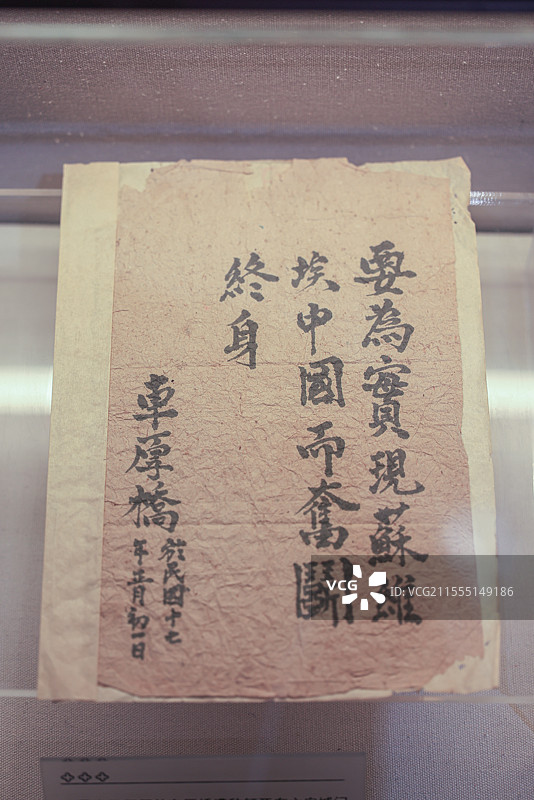 要為實現蘇維
埃中國而奮鬭
終身
車厚橋
於民國十七
年正月初一日
VCG ID:VCG211555149186